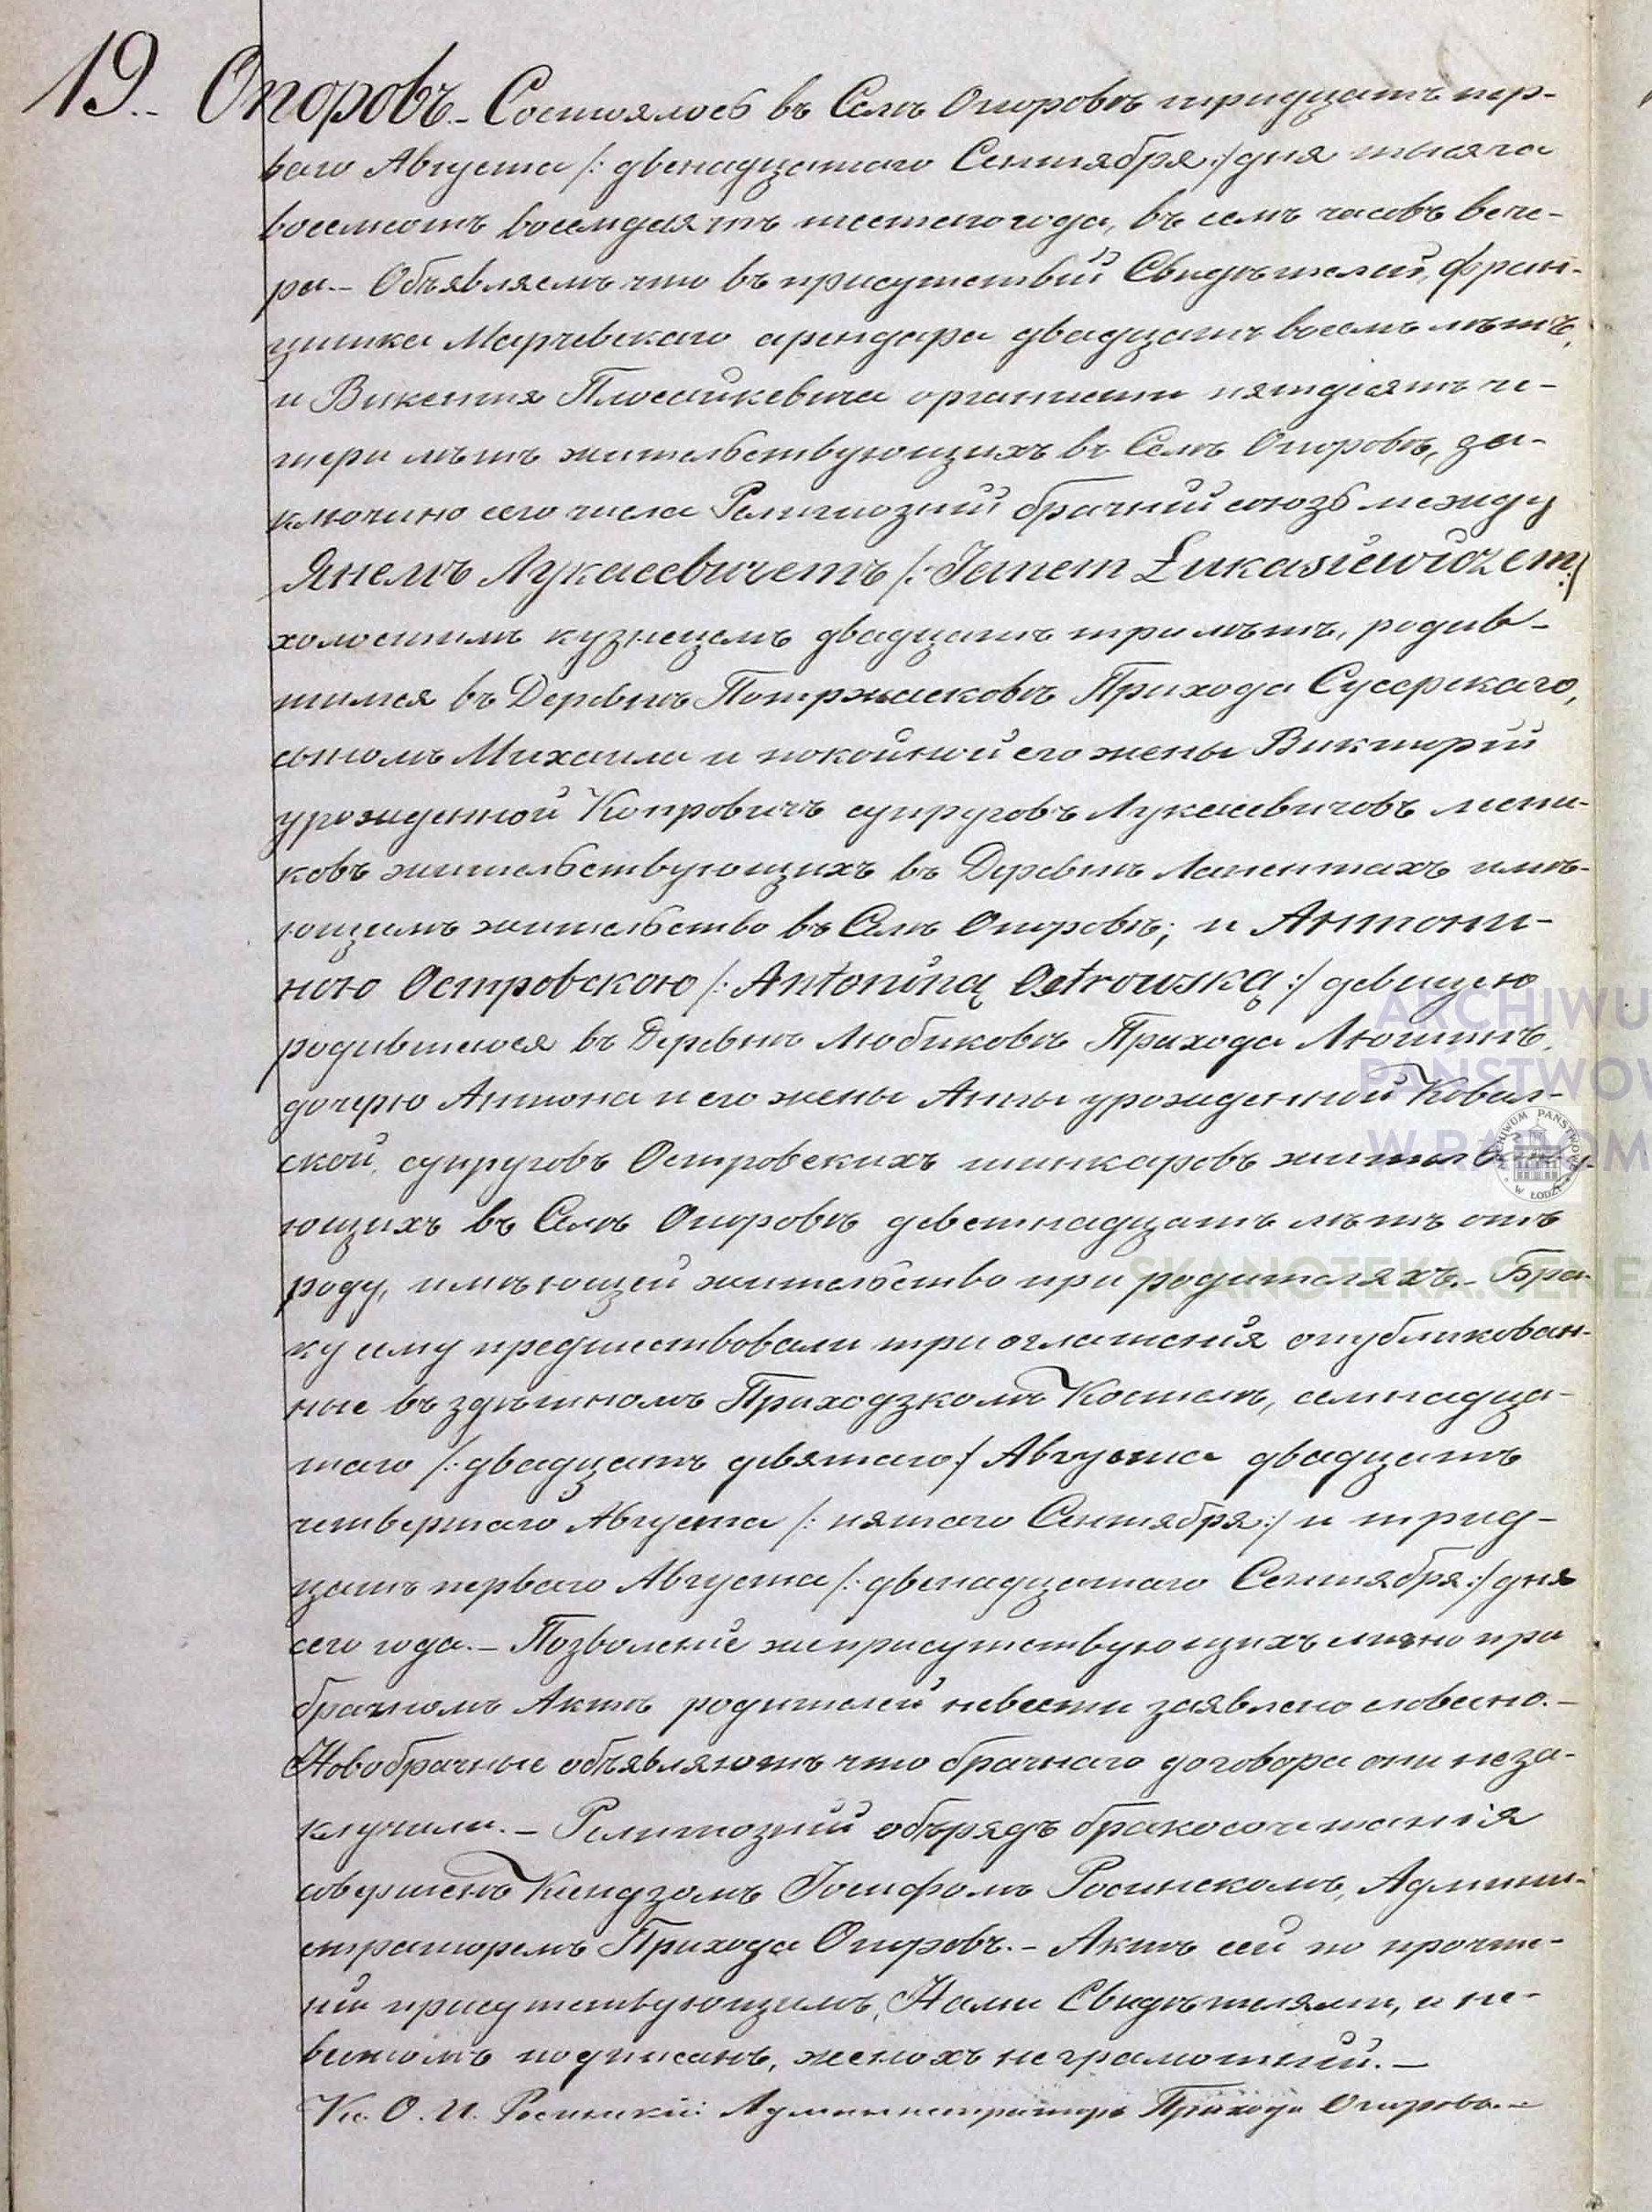 19. Опоровъ. - Состоялось въ Селѣ Опоровѣ тридцать пер-
ваго Августа /: двенадцатаго Сентября :/ дня тысяча
восемсотъ восемдесятъ шестого года, въ семъ часовъ вече-
ра. - Объявляемъ что въ присутствій Свидѣтелей, Фран-
цишка Марчевскаго арендара двадцать восемъ лѣтъ,
и Викентия органисти пятдесятъ че-
тери лѣтъ жительствующихъ въ Селѣ Опоровѣ, за-
ключино сего числа Религиозний брачний союзъ между
Янемъ Лукасевичемъ /: Janem Łukasiewiczem :/
холостимъ кузнецемъ двадцать три лѣтъ, родив-
шимся въ Деревнѣ Потржасковѣ Прихода Сусерскаго,
сыномъ Михаила и покойной его жены Викторій
урожденной Копровичъ супруговъ Лукасевичовъ
ковъ жительствующихъ въ Деревнѣ имѣ-
ющимъ жительство въ Селѣ Опоровѣ; и Антони-
ною Островскою /: Antoniną Ostrowską :/ девицею
родившеюся въ Деревнѣ Любиковѣ Прихода
дочерю Антона и его жены Анны урожденной Ковал-
ской, супруговъ Островскихъ шинкаровъ жительству-
ющихъ въ Селѣ Опоровѣ девятнадцать лѣтъ отъ
роду, имѣющей жительство при родителяхъ. - Бра-
ку сему предшествовали три оглашения опубликован-
ние въ здѣшномъ Приходзкомъ Костелѣ, семнадца-
таго /: двадцать девятаго :/ Августа двадцать
четвертаго Августа /: пятаго Сентября :/ и трид-
цать перваго Августа /: двенадцатаго Сентября :/ дня
сего года. - Позволение жеприсутствующихъ лично при
брачномъ Актѣ родителей невести заявлено словесно. -
Новобрачные объявляютъ что брачнаго договора они неза-
ключили. - Религиозний обърядъ бракосочетанія
совершенъ Ксендзомъ Іосифомъ Росинскомъ, Админи-
страторемъ Прихода Опоровъ. - Актъ сей по прочте-
ніи присутствующимъ, Нами Свидѣтелями, и не-
вестомъ подписанъ, женихъ неграмотний. -
Кс. О. И. Росинскій Администраторъ Прихода Опоровъ. -
ARCHIWU
PAŃSTWOW
W RADOM
ARCHIWUM PAŃSTWOWE W ŁODZI
SKANOTEKA.GENE